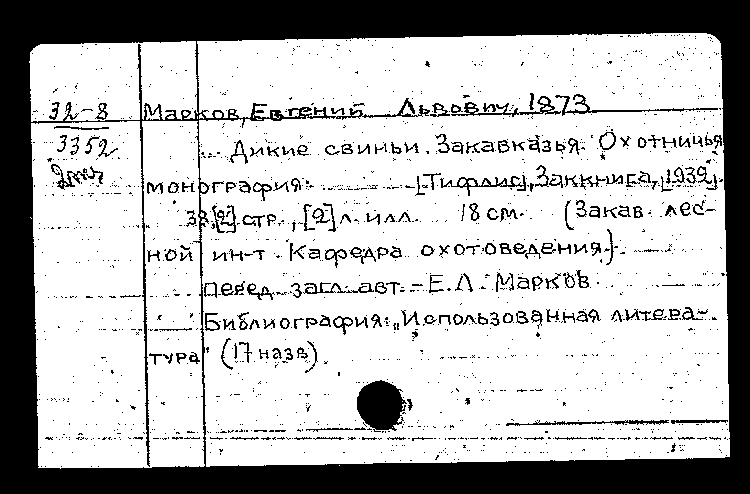 32-8
3352
Марков, Евгений Львович, 1873
Дикие свиньи Закавказья. Охотничья
монография. [Тифлис], Заккнига, [1932].
38,[2] стр., [2] л. илл. 18 см. (Закав. лес-
ной ин-т. Кафедра охотоведения).
Перед загл. авт. - Е.Л. Марков
Библиография: „Использованная литера-
тура" (17 назв).